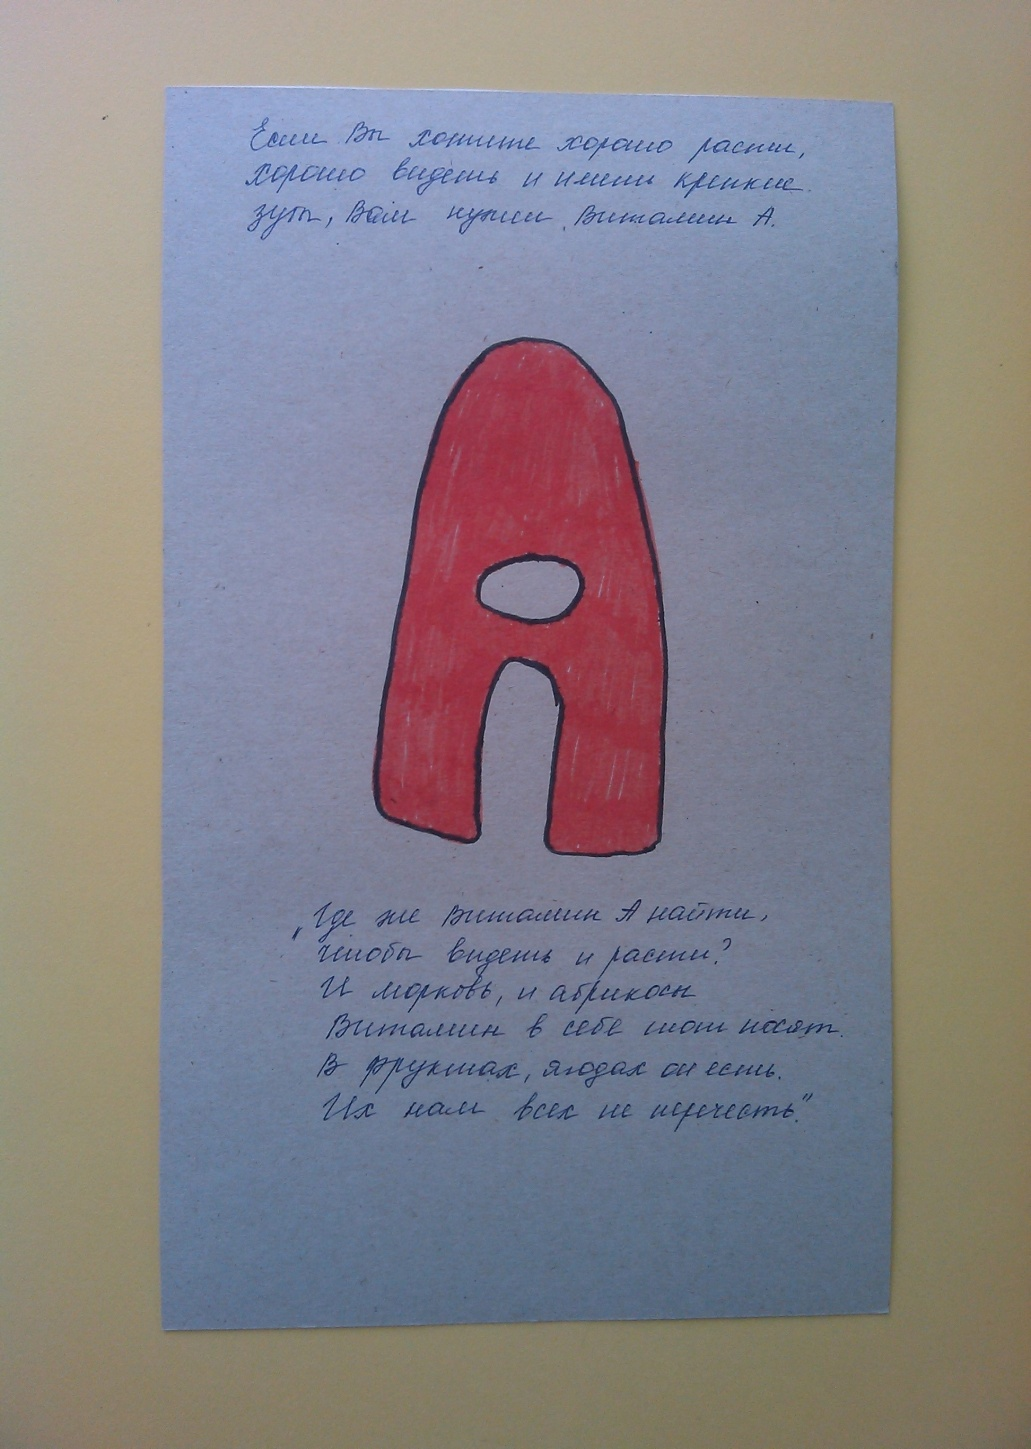 Если Вы хотите хорошо расти,
хорошо видеть и иметь крепкие
зубы, Вам нужен Витамин А.
А
„Где же Витамин А найти,
чтобы видеть и расти?
И морковь, и абрикосы
Витамин в себе тот носят.
В фруктах, ягодах он есть.
Их нам всех не перечесть."